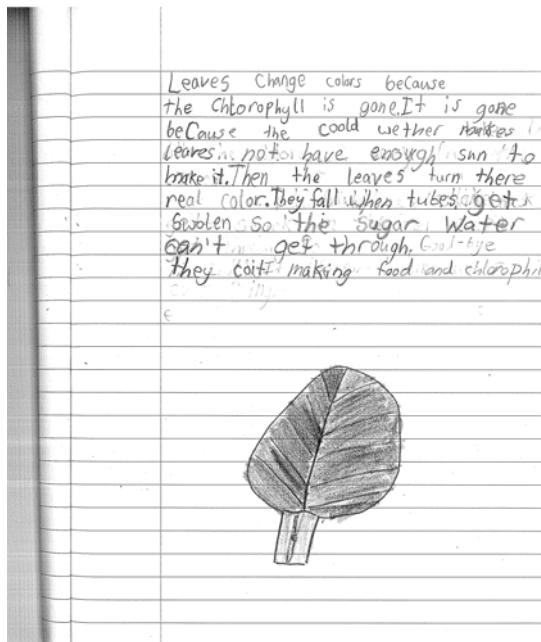 Leaves Change colors beCause
the Chlorophyll is gone. It is gone
beCause the coold wether makes
leaves not have enough sun to
make it. Then the leaves turn there
real color. They fall when tubes get
Swolen So the Sugar Water
can't get through. Good-bye
they making food and chloroph